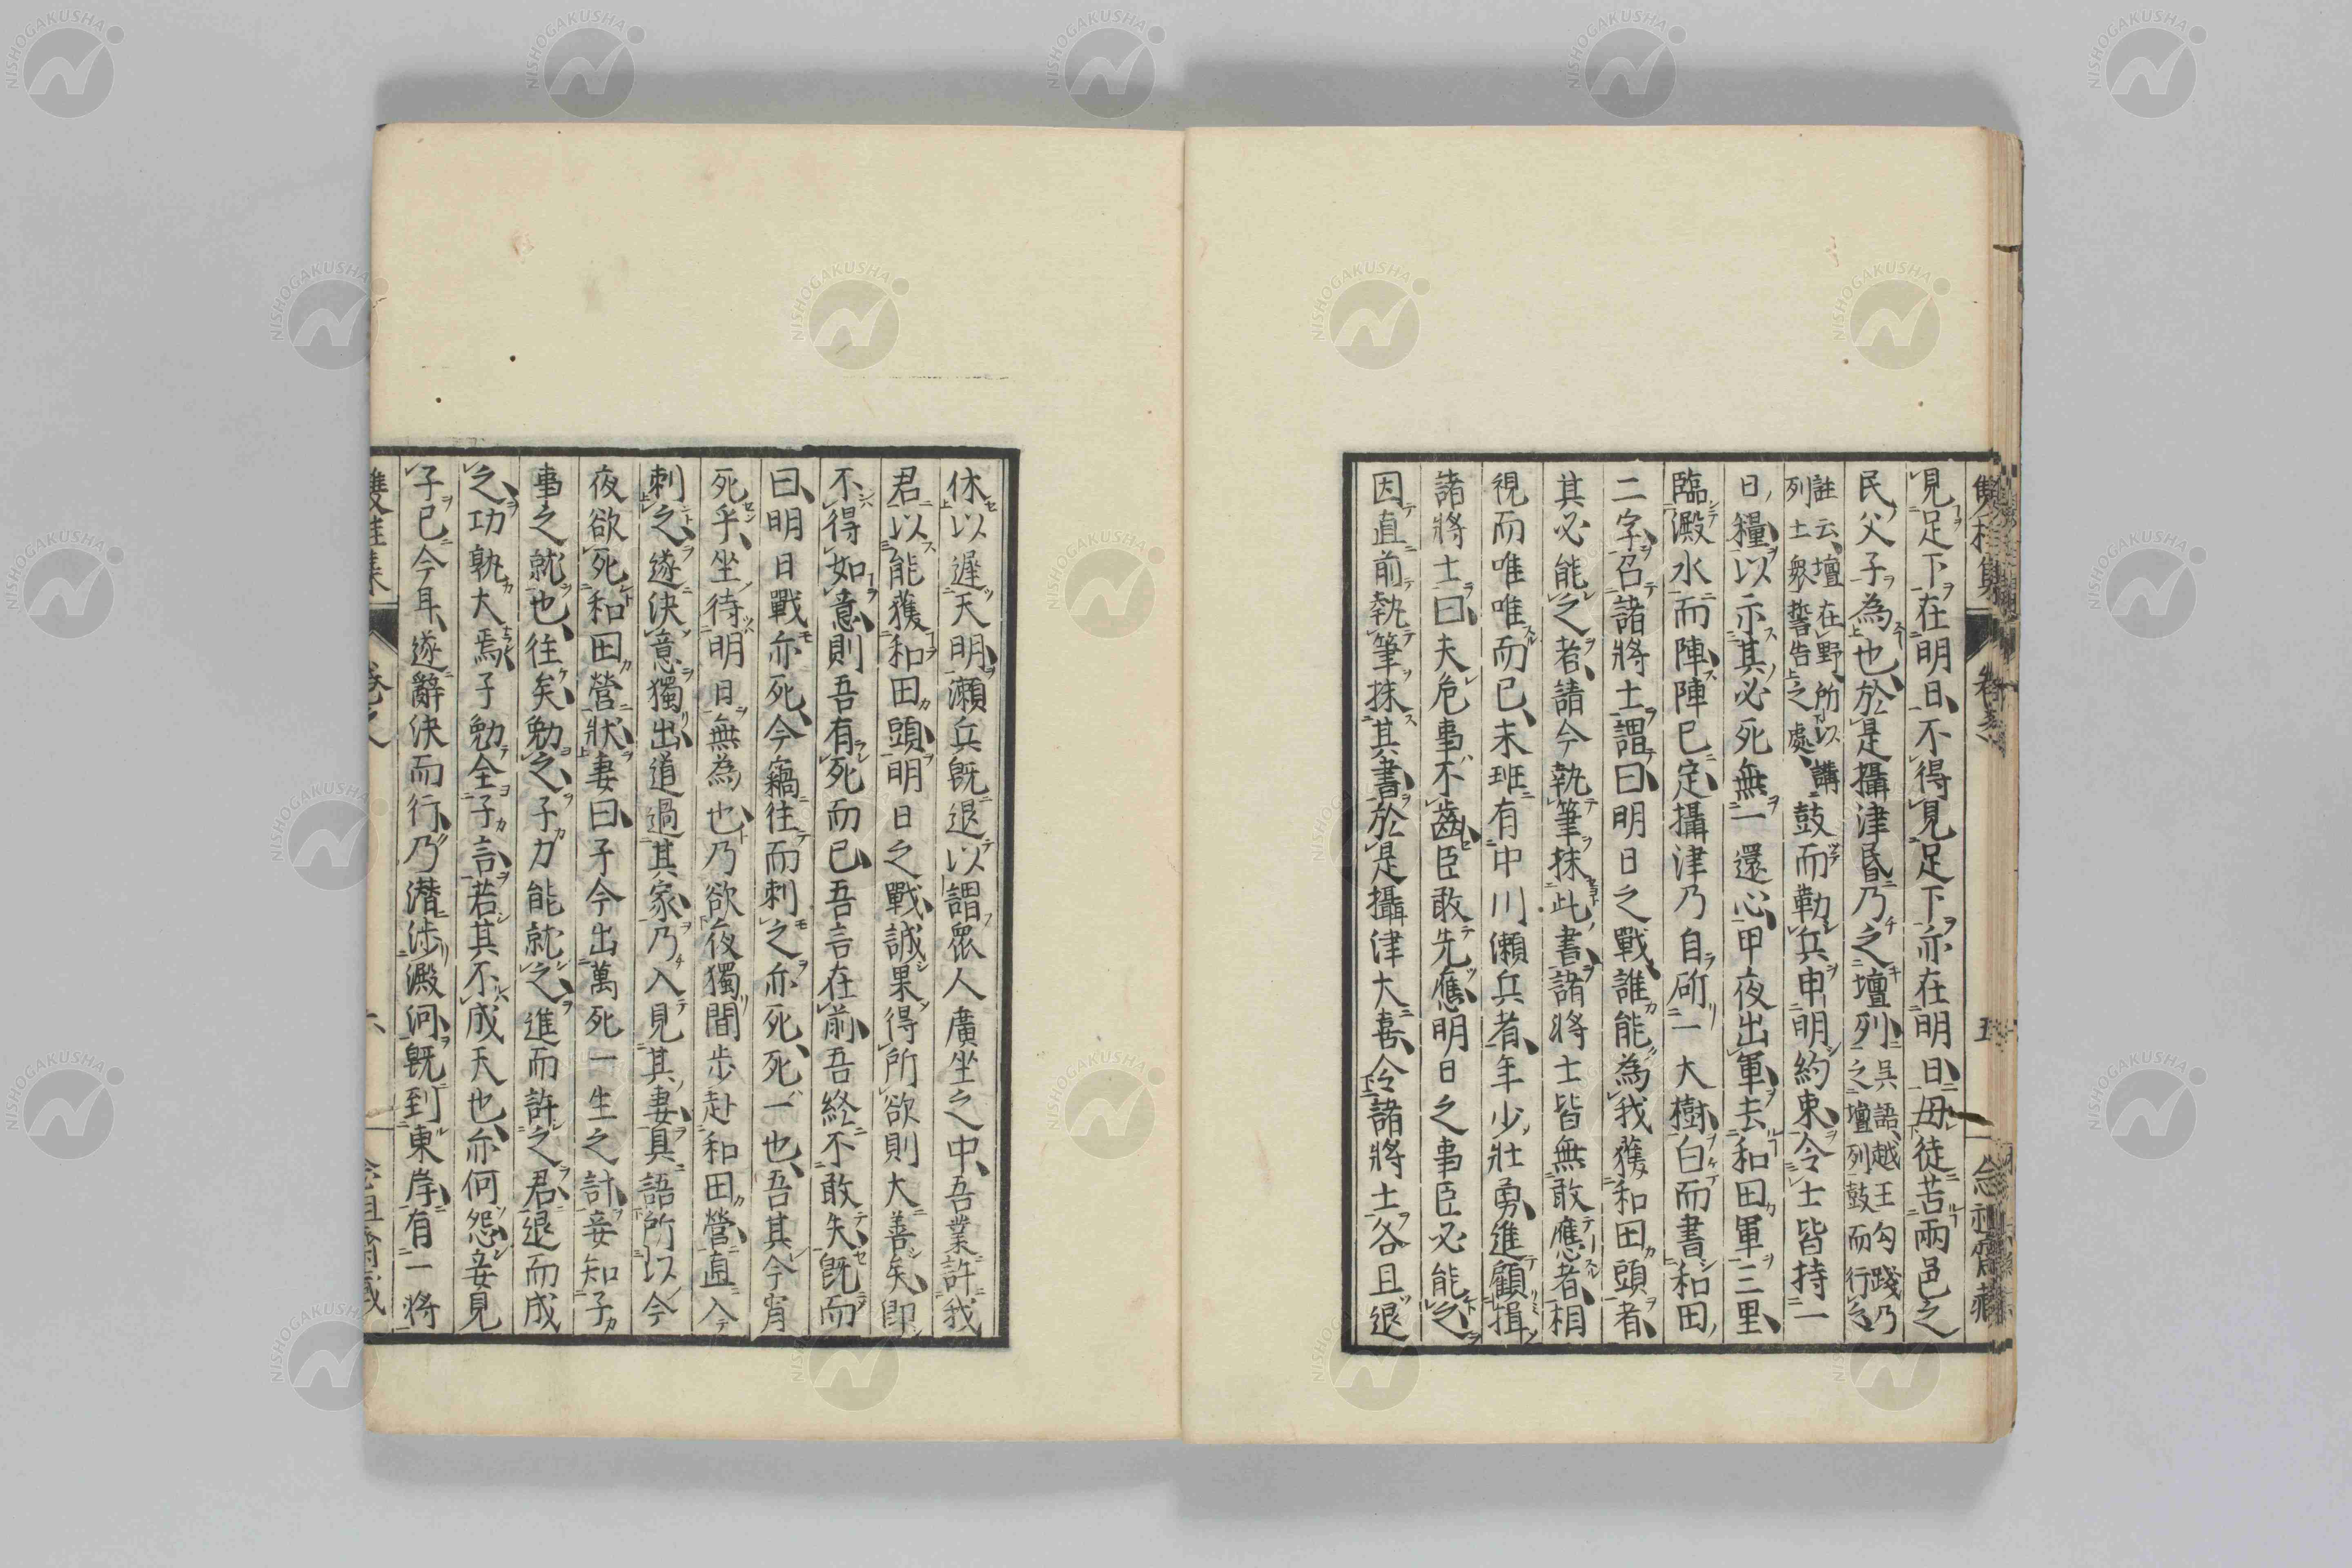 見足下在明日不得見足下亦在明日毋徒苦兩邑之
民父子為也於是攝津昏乃之壇列吳語越王勾踐乃之壇列鼓而行之
註云壇在野所以講列士衆誓告之處鼓而勒兵申明約束令士皆持一
日糧以示其必死無一還心甲夜出軍去和田軍三里
臨澱水而陣陣已定攝津乃自斫一大樹白而書和田
二字召諸將士謂曰明日之戰誰能為我獲和田頭者
其必能之者請今執筆抹此書諸將士皆無敢應者相
視而唯唯而已末班有中川瀬兵者年少壯勇進顧揖
諸將士曰夫危事不齒臣敢先應明日之事臣必能之
因直前執筆抹其書於是攝津大喜令諸將士各且退
休以遲天明瀬兵既退以謂眾人廣坐之中吾業許我
君以能獲和田頭明日之戰誠果得所欲則大善矣即
不得如意則吾有死而已吾言在前吾終不敢失既而
曰明日戰亦死今竊往而刺之亦死死一也吾其今宵
死乎坐待明日無為也乃欲夜獨間步赴和田營直入
刺之遂決意獨出道過其家乃入見其妻具語所以今
夜欲死和田營狀妻曰子今出萬死一生之計妾知子
事之就也往矣勉之子力能就之進而許之君退而成
之功孰大焉子勉全子言若其不成天也亦何怨妾見
子已今耳遂辭決而行乃潜渉澱河既到東岸有一將